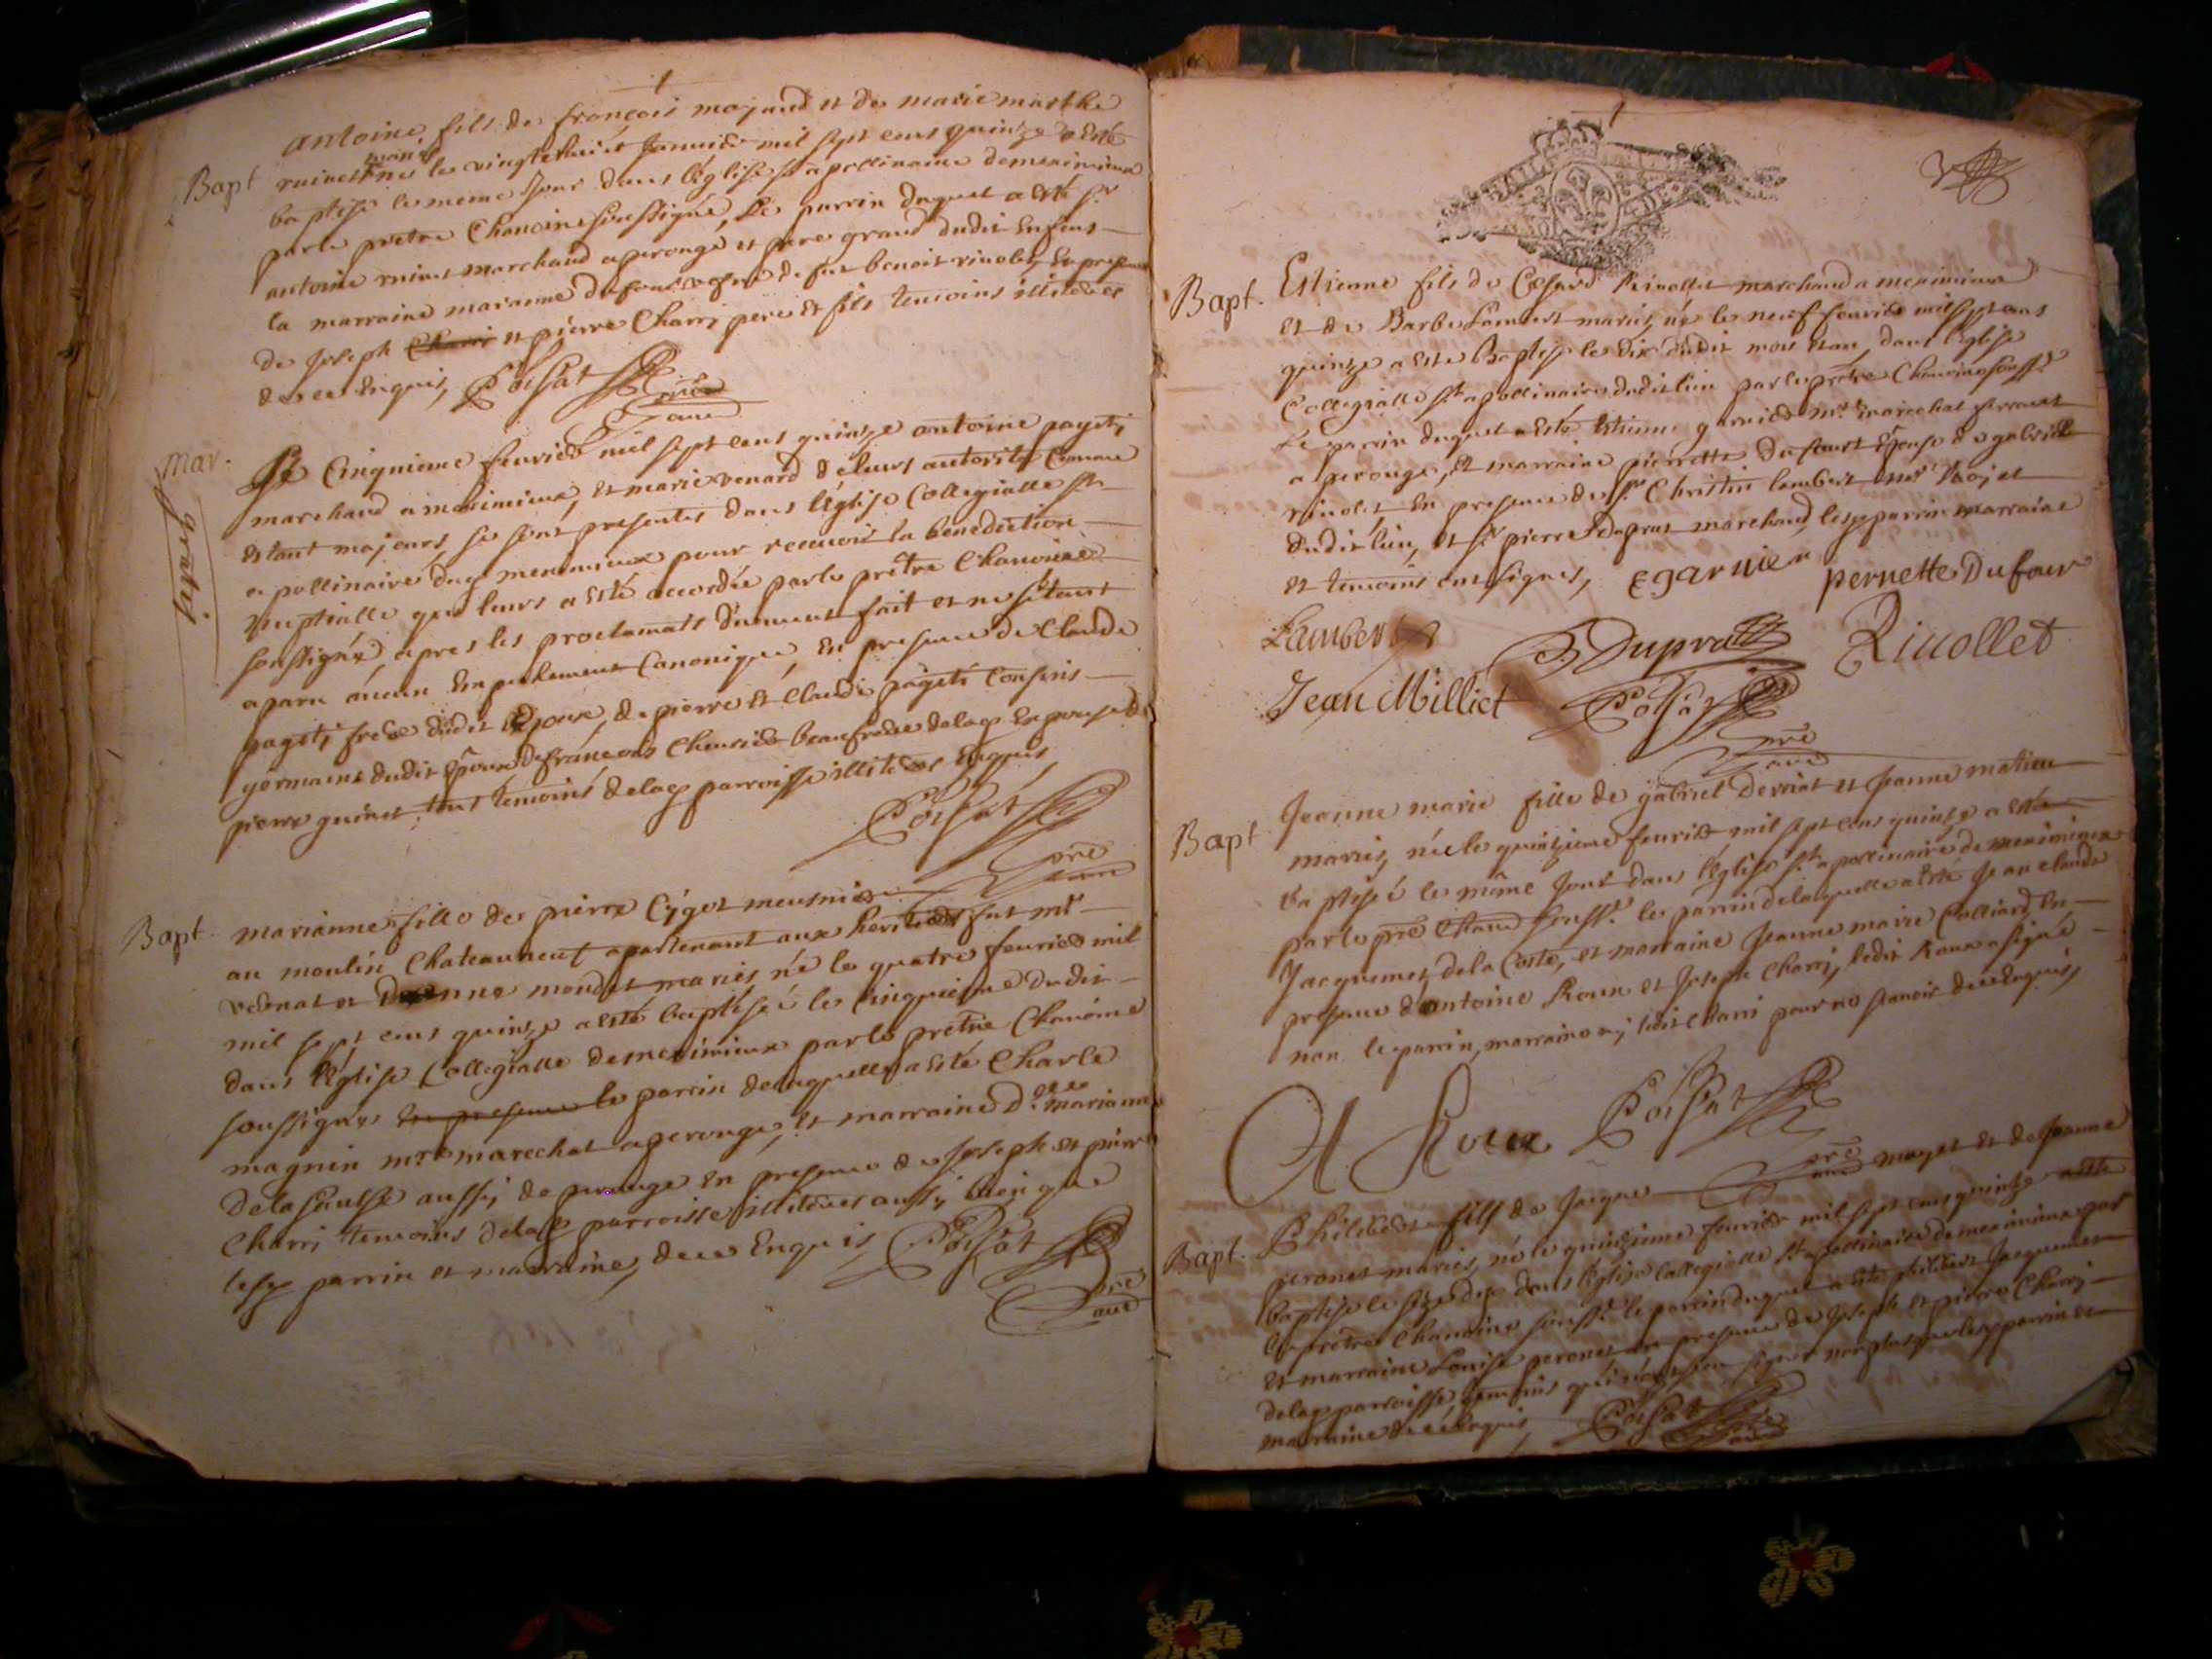 Bapt
antoine fils de françois mojand et de marie marthe
mariés
ruinet né le vingt huict Januier mil sept cens quinze a esté
baptisé le meme Jour dans l'église st apollinaire de meximieux
par le pretre Chanoine soussigné, Le parrin duquel a esté sr
antoine ruinet marchand a perouge et pere grand dudit enfent
la marraine marianne dufour de fut benoit riuolet, En presence
de Joseph et pierre Charri pere et fils temoins illiterés
de ce enquis, Poisat
pre
Mar.
gratis
Le Cinquieme feurier mil sept cens quinze antoine pageti
marchand a meximieux, et marie venard de leurs autorités comme
estant majeurs se sont presentés dans l'église Collegialle st
apollinaire dud meximieux pour recevoir la benediction
nuptialle que leurs a esté accordée par le pretre Chanoine
soussigné, apres les proclamats dûement fait et ne s'étant
aparu aucun Empechement Canonique, En presence de Claude
pageti frere dudit Epoux, de pierre et Claude pageti Cousins
germains dudit Epoux De françois Cheurier beaufrere de lad Epouse de
pierre guinet tous temoins de lad parroisse illiterés Enquis
Poisat
pre
Bapt.
marianne fille de pierre Cygot meusnier
au moulin Chateauneuf apartenant aux heritiers fut mr
vernat et mondet mariés, née le quatre feurier mil
mil sept cens quinze a esté baptisée le Cinquieme dudit
dans l'église Collegialle de meximieux par le pretre Chanoine
soussigné en presence le parrin de laquelle a esté Charle
magnin mre marechat a perouge, et marraine Dlle marianne
delasausse aussy de perouge en presence de Joseph et pierre
Charri temoins de lad parroisse illiterés aussy bien que
lesd parrin et marraine, de ce Enquis, Poisat
pre
Bapt.
Estienne fils de Cesard Riuollet marchand a meximieux
et de Barbe Lambert mariés, né le neuf feurier mil sept cens
quinze a esté Baptisé le dix dudit mois et an, dans l'église
Collegialle st apollinaire dudit lieu par le pretre Chanoine souss
Le parrin duquel a esté estienne garnier mre marechat ferrant
a perouge, et marraine pierrette dufour Epouse de gabriel
riuolet En presence de sr Christin lambert nre Roial
dudit lieu, et sr pierre duprat marchand, lesd parrin marraine
et temoins ont signés, E garnier pernette Dufour
Lambert P. Duprat Riuollet
Jean Milliet Poisat
pre
Bapt
Jeanne marie fille de gabriel Derriat et Jeanne matieu
mariés, née le quinzieme feurier mil sept cens quinze a esté
Baptisée le même Jour dans l'église st apollinaire de meximieux
par le pre Chane souss. le parrin de laquelle a esté Jean claude
Jacquemet, de la Coste, et marraine Jeanne marie Colliard, En
presence d'antoine Roux et Joseph Charri, ledit Roux a signé
non le parrin, marraine ny ledit Charri pour ne scauoir de ce Enquis,
A Roux Poisat
pre
Bapt.
Philibert fils de Jaque moyet et de Jeanne
peronet mariés, né le quinzieme feurier mil sept cens quinze a esté
baptisé le seze du dans l'église Collegialle st apollinaire de meximieux par
le pretre Chanoine souss. le parrin duquel a esté philibert Jacquemet
et marraine Louise peronet En presence de Joseph et pierre Charri
de lad parroisse temoins qui n'ont sceu signer non plus que lesd parrin et
marraine de ce Enquis, Poisat
pre